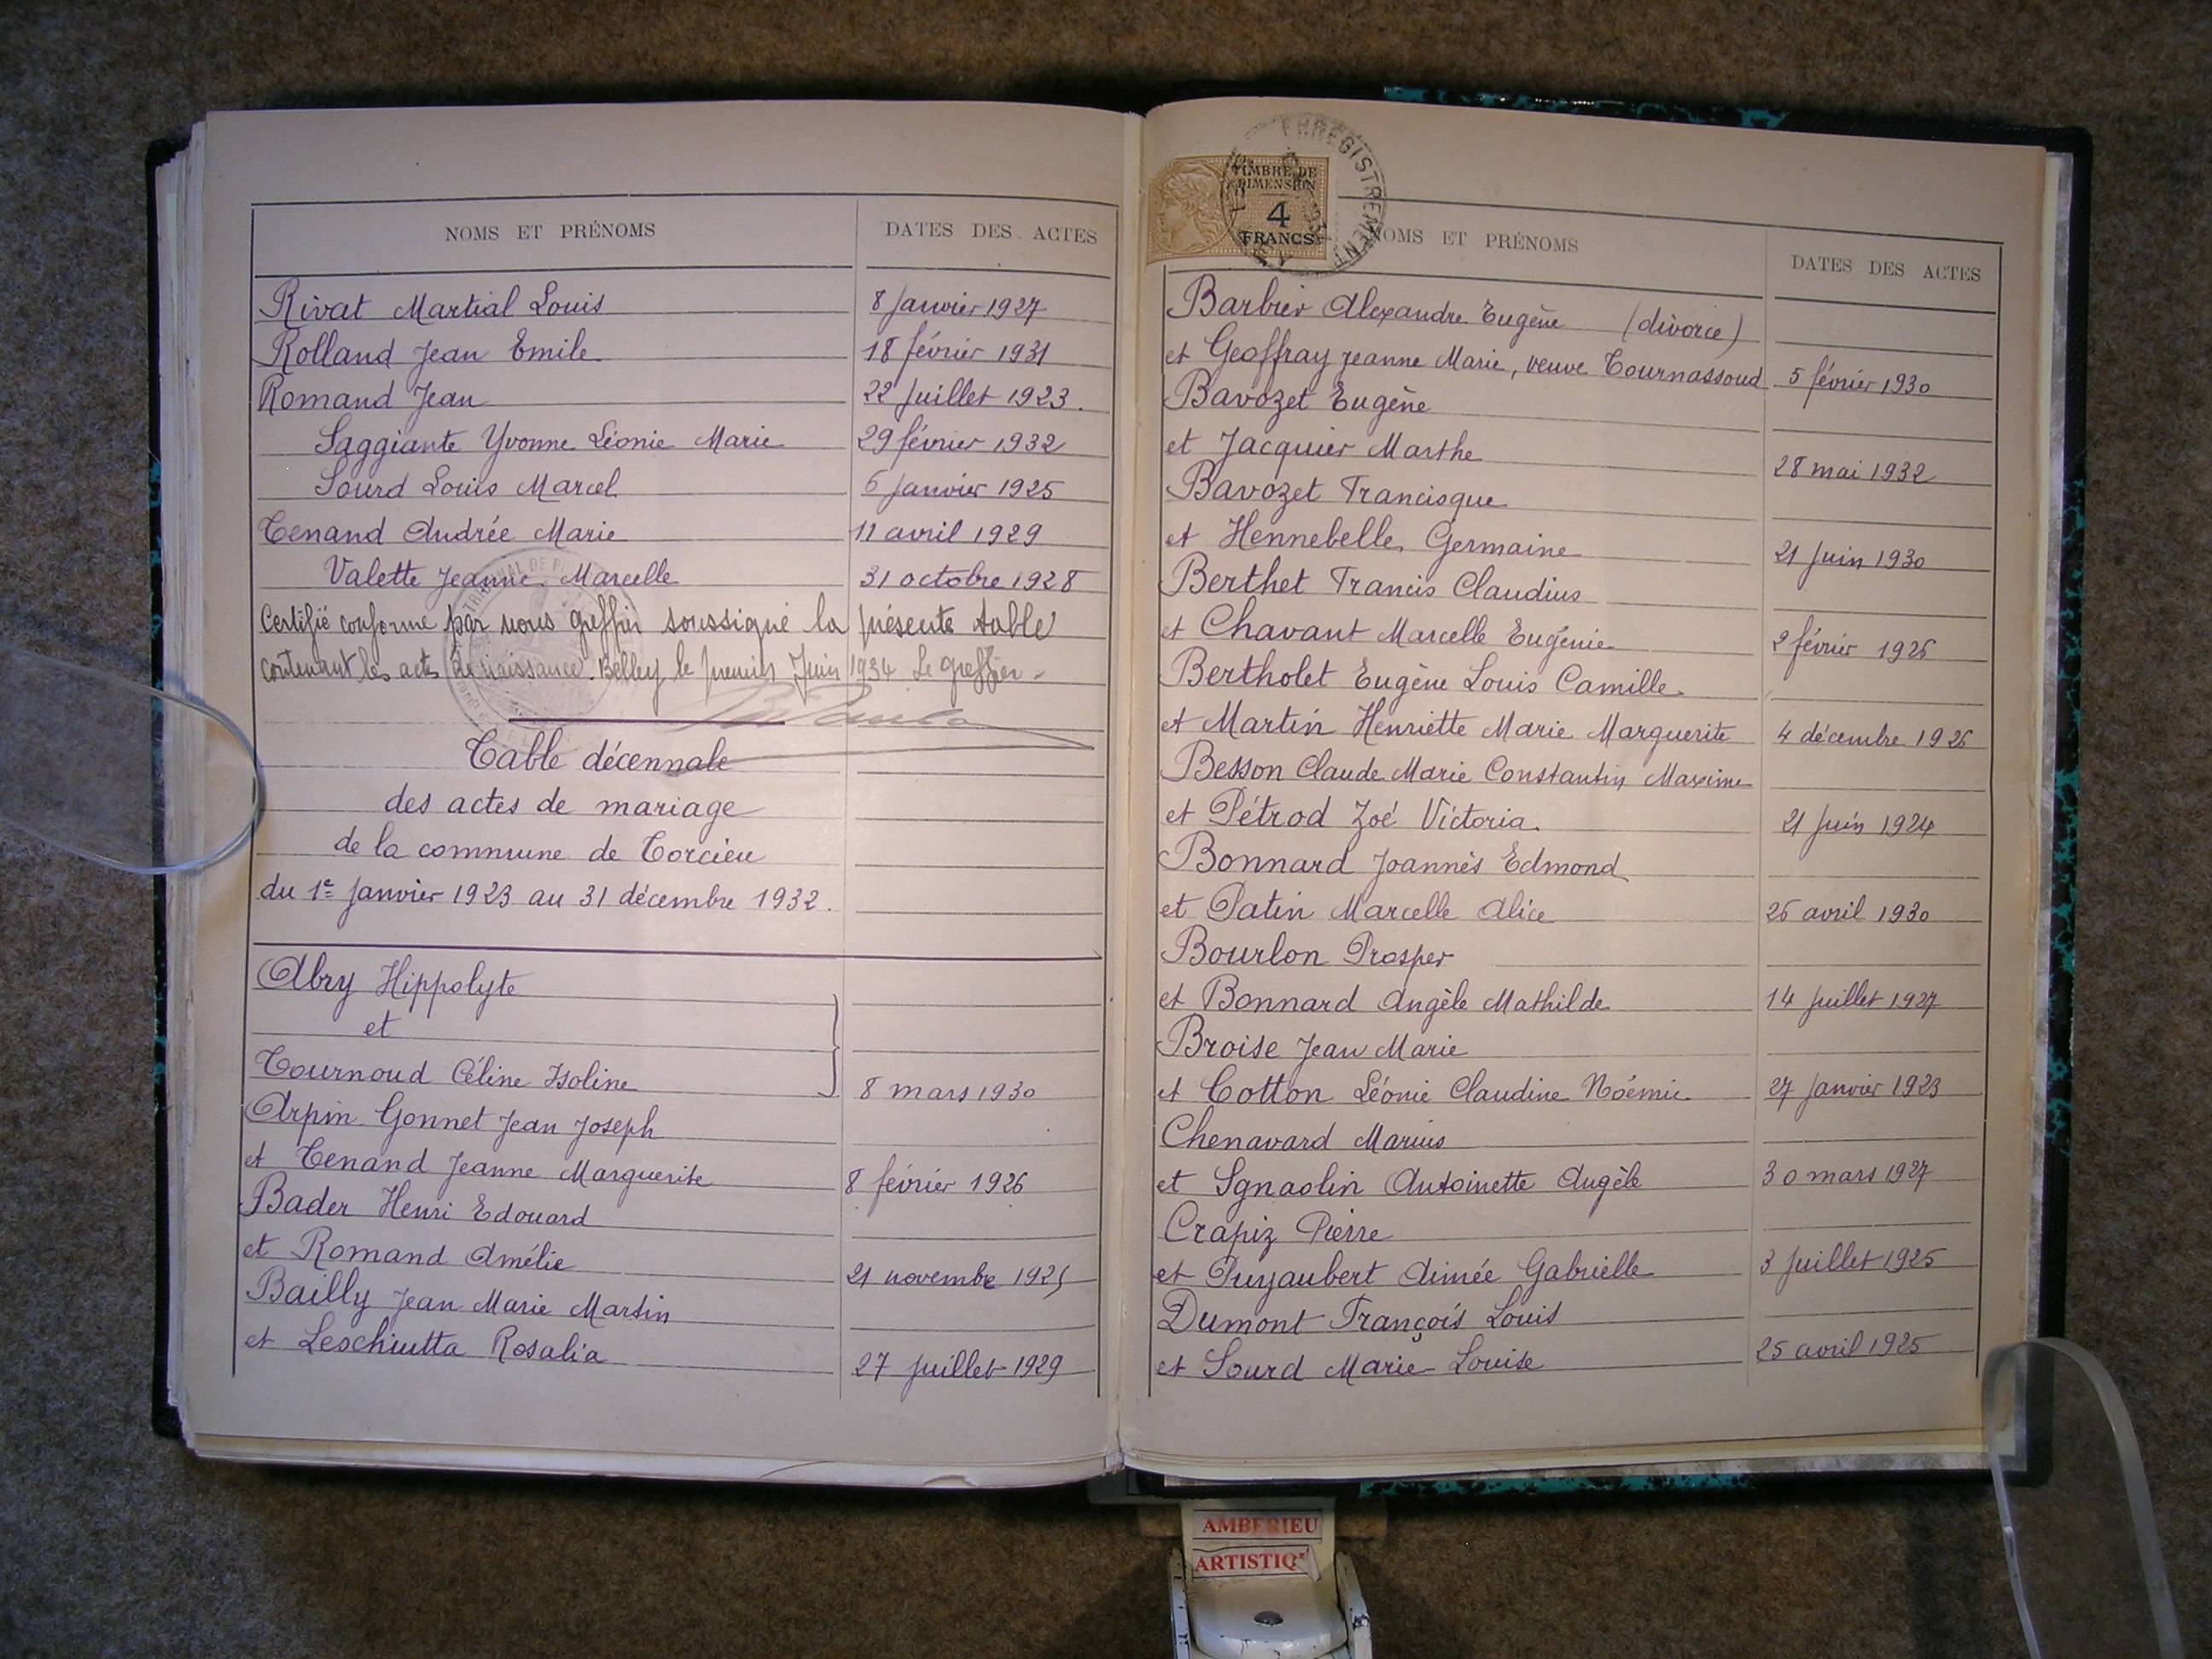 NOMS ET PRÉNOMS DATES DES ACTES
Rivat Martial Louis 8 janvier 1927
Rolland Jean Emile 18 février 1931
Romand Jean 22 juillet 1923.
Saggiante Yvonne Léonie Marie 29 février 1932
Sourd Louis Marcel 6 janvier 1925
Tenand Andrée Marie 11 avril 1929
Valette Jeanne Marcelle 31 octobre 1928
Certifié conforme par nous greffier soussigné la présente table
contenant les actes de naissance. Belley le premier Juin 1934 Le greffier
Table décennale
des actes de mariage
de la commune de Torcieu
du 1er janvier 1923 au 31 décembre 1932.
Abry Hippolyte
et
Tournoud Céline Isoline 8 mars 1930
Arpin Gonnet Jean Joseph
et Tenand Jeanne Marguerite 8 février 1926
Bader Henri Edouard
et Romand Amélie 21 novembre 1925
Bailly Jean Marie Martin
et Leschiutta Rosalia 27 juillet 1929
TIMBRE DE
DIMENSION
4
FRANCS
ENREGISTREMENT
NOMS ET PRÉNOMS DATES DES ACTES
Barbier Alexandre Eugène (divorcé)
et Geoffray Jeanne Marie, veuve Tournassoud 5 février 1930
Bavozet Eugène
et Jacquier Marthe 28 mai 1932
Bavozet Francisque
et Hennebelle Germaine 21 juin 1930
Berthet Francis Claudius
et Chavant Marcelle Eugénie 2 février 1926
Bertholet Eugène Louis Camille
et Martin Henriette Marie Marguerite 4 décembre 1926
Besson Claude Marie Constantin Maxime
et Pétrod Zoé Victoria. 21 juin 1924
Bonnard Joannès Edmond
et Patin Marcelle Alice 26 avril 1930
Bourlon Prosper
et Bonnard Angèle Mathilde 14 juillet 1927
Broise Jean Marie
et Cotton Léonie Claudine Noémie 27 janvier 1923
Chenavard Marius
et Sgnaolin Antoinette Angèle 30 mars 1927
Crapiz Pierre
et Puyaubert Aimée Gabrielle 3 juillet 1925
Dumont François Louis
et Sourd Marie-Louise 25 avril 1925
AMBERIEU
ARTISTIQ